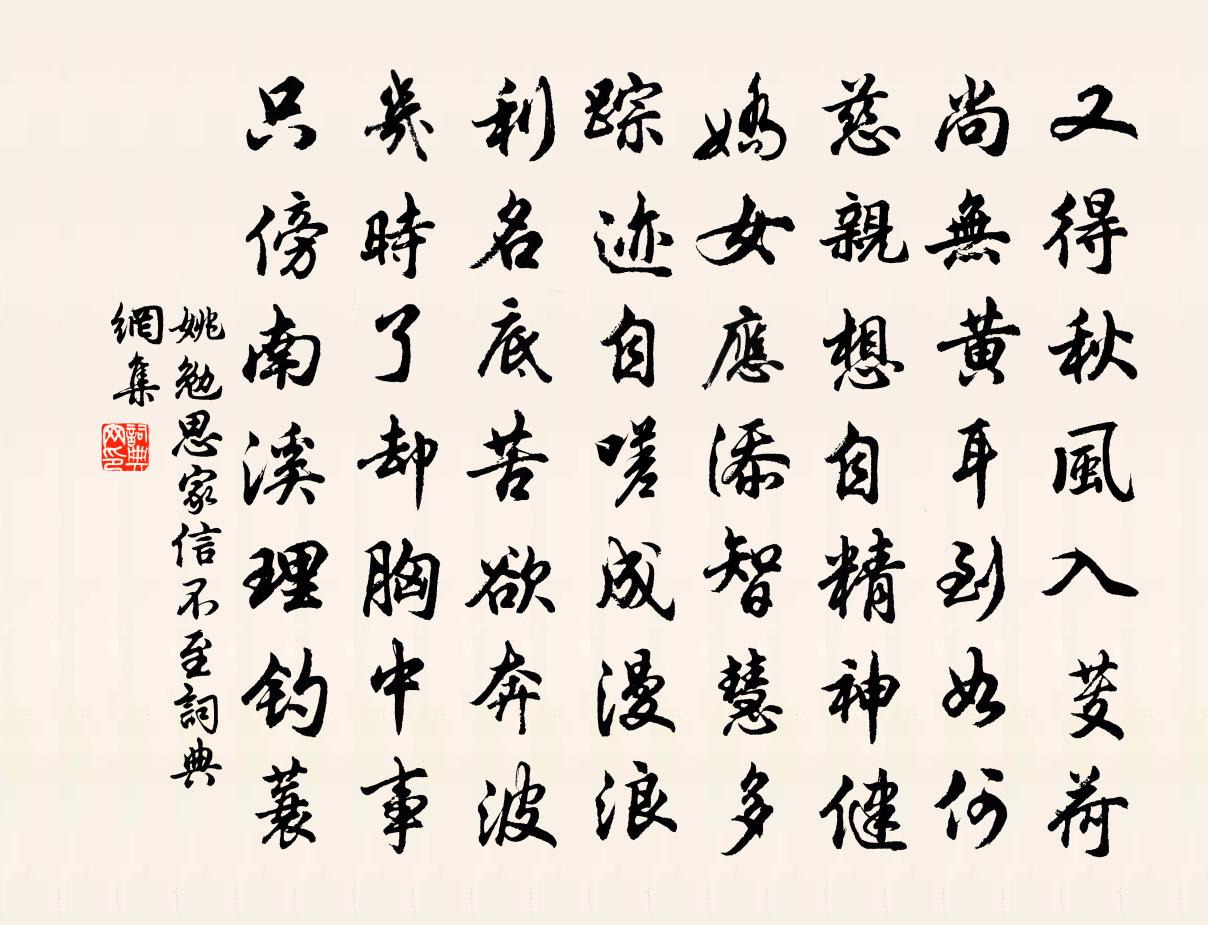 又得秋風入芰荷
尚無黃耳到如何
慈親想自精神健
嬌女應添智慧多
踪迹自嗟成漫浪
利名底苦欲奔波
幾時了却胸中事
只傍南溪理釣蓑
姚勉思家信不至詞典
網集
詞典
网印